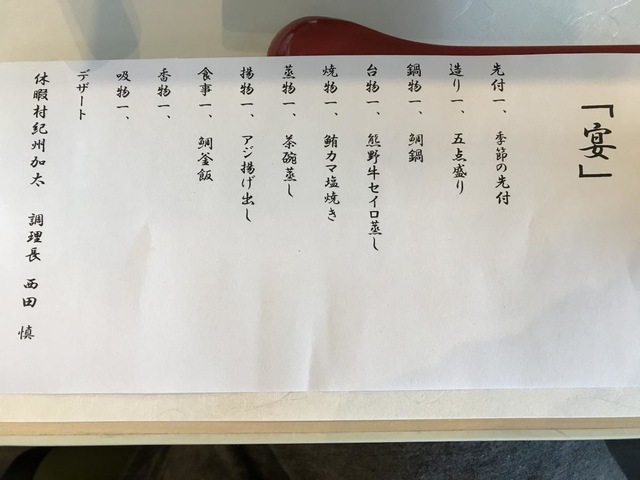 「宴」
先付一、 季節の先付
造り一、 五点盛り
鍋物一、 鯛鍋
台物一、 熊野牛セイロ蒸し
焼物一、 鮪カマ塩焼き
蒸物一、 茶碗蒸し
揚物一、 アジ揚げ出し
食事一、 鯛釜飯
香物一、
吸物一、
デザート
休暇村紀州加太 調理長 西田 慎